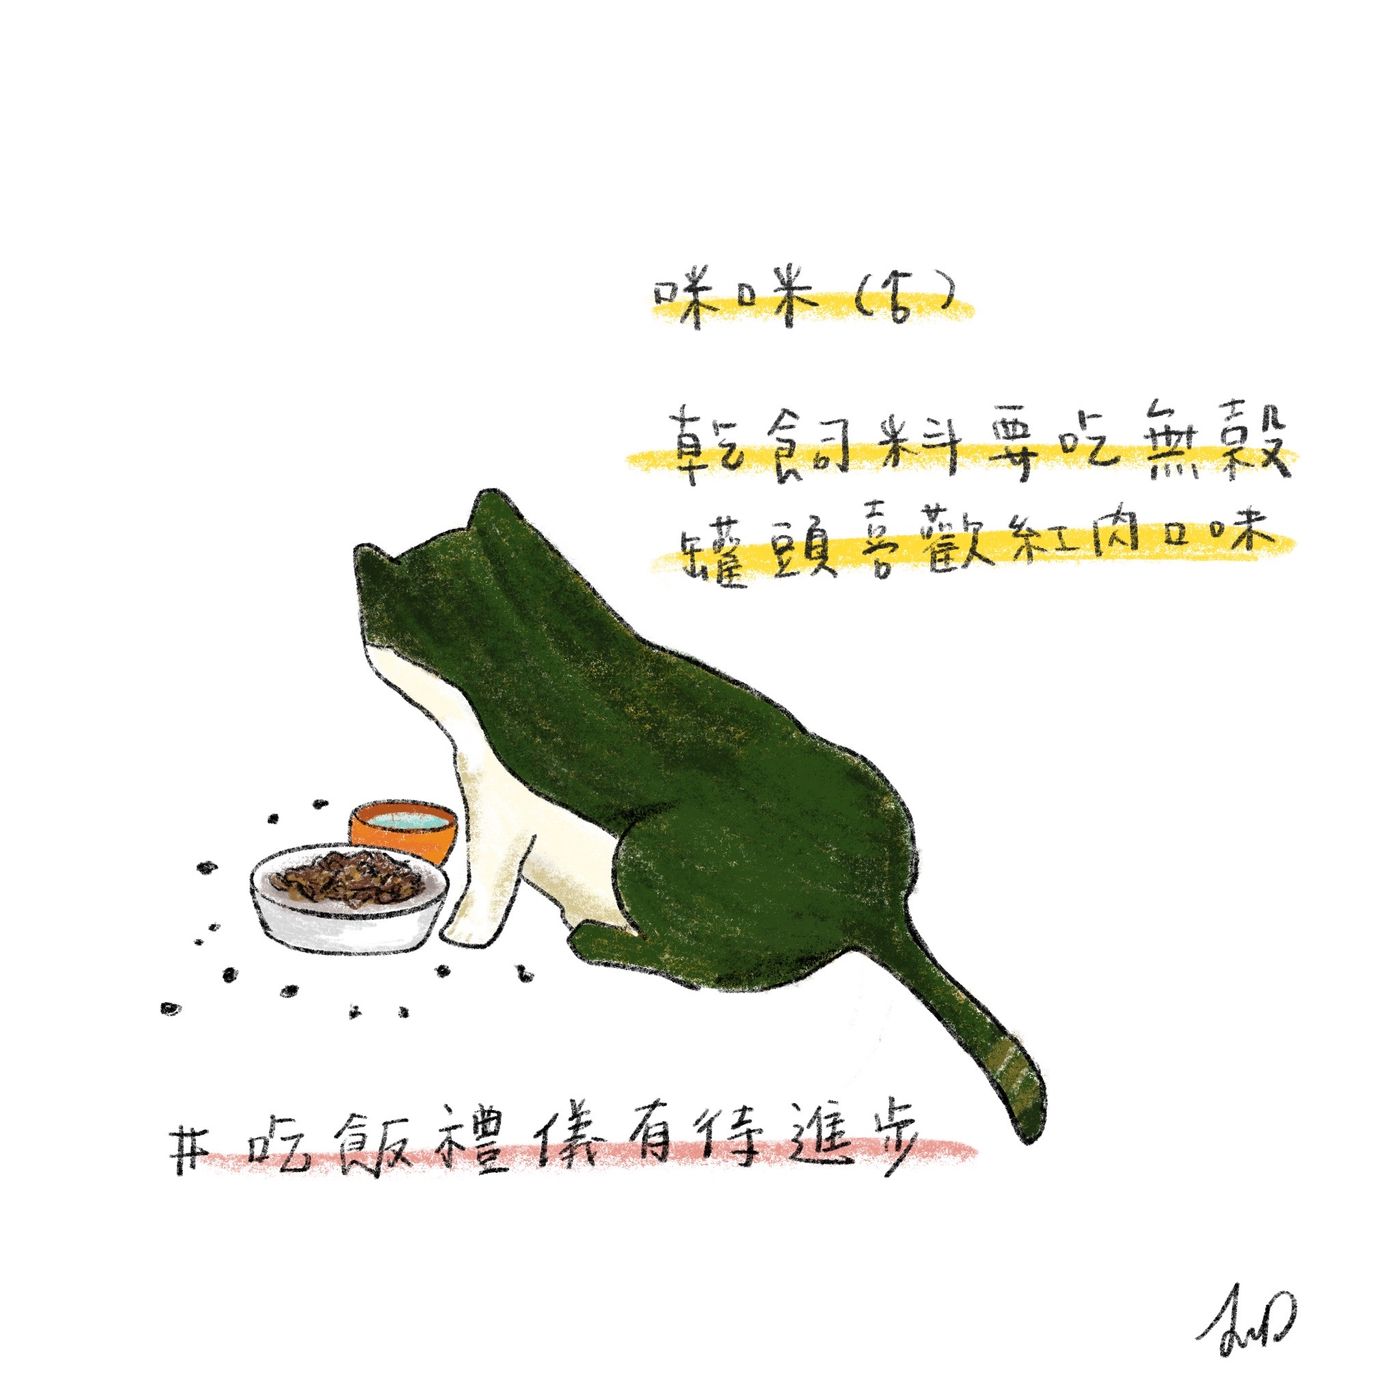 咪咪（♂）
乾飼料要吃無穀
罐頭喜歡紅肉口味
#吃飯禮儀有待進步